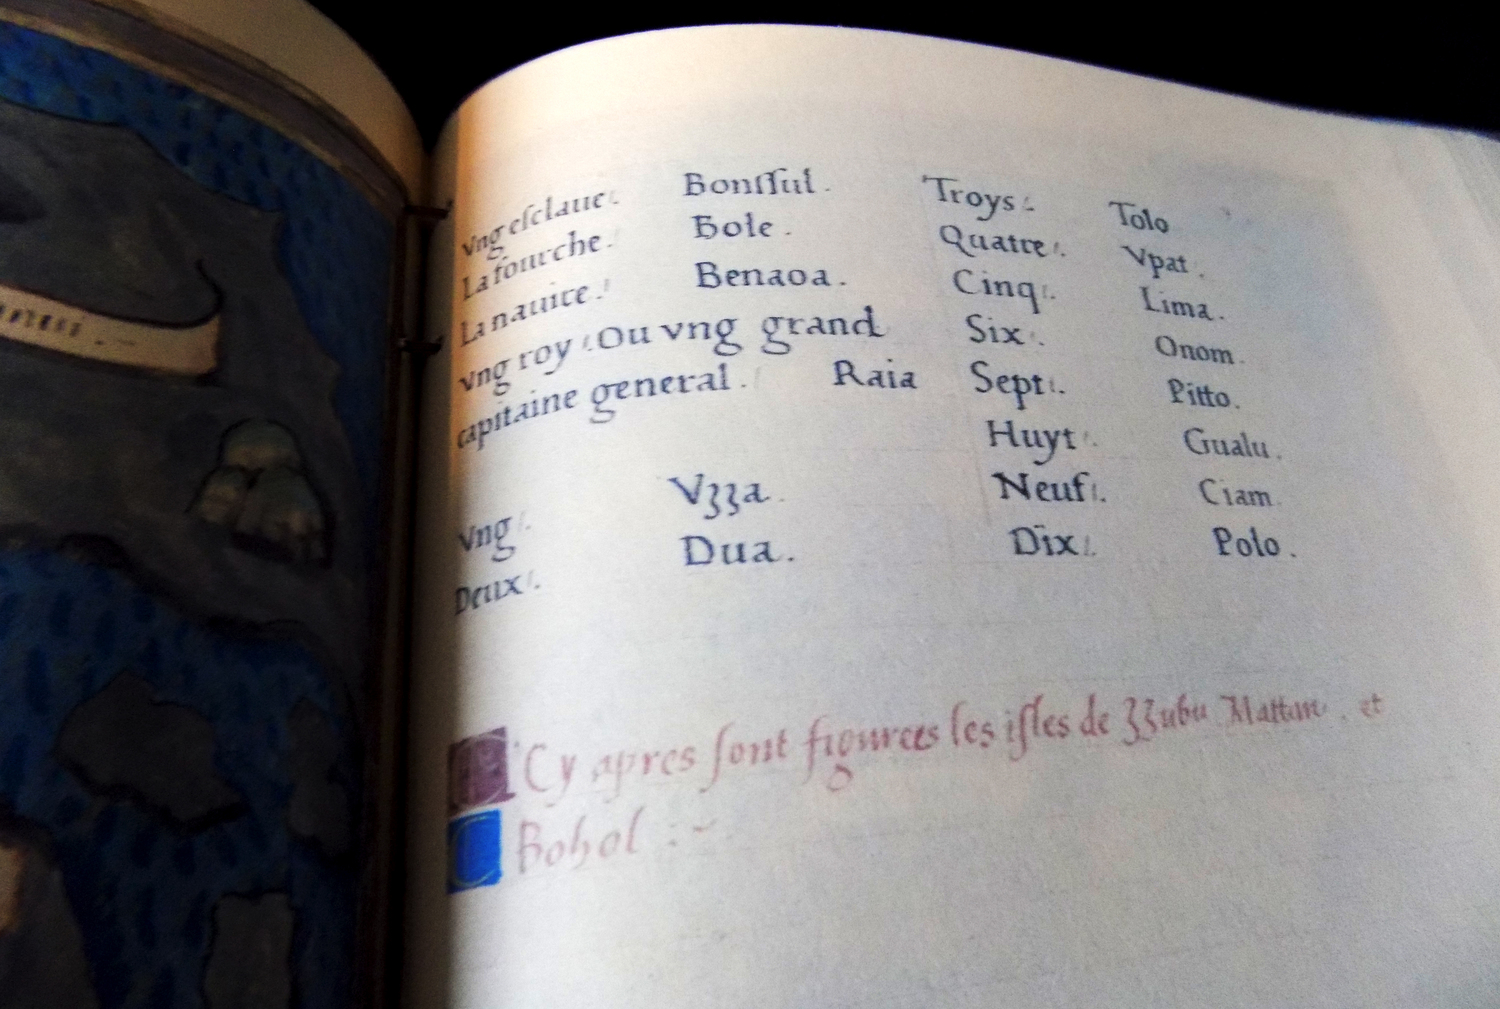 vng esclaue. Bonssul.
La fourche. Bole.
La nauire. Benaoa.
vng roy. Ou vng grand
capitaine general. Raia
Vng. Vzza.
Deux. Dua.
Troys. Tolo
Quatre. Vpat.
Cinq. Lima.
Six. Onom.
Sept. Pitto.
Huyt. Gualu.
Neuf. Ciam.
Dix. Polo.
Cy apres sont figurees les isles de Zzubu Mattan. et
Bohol :~